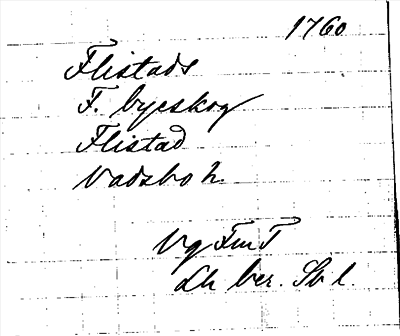 1760
Flistads
F. byeskog
Flistad
Vadsbo h.
Vg FmT
Lh ber. Sb l.